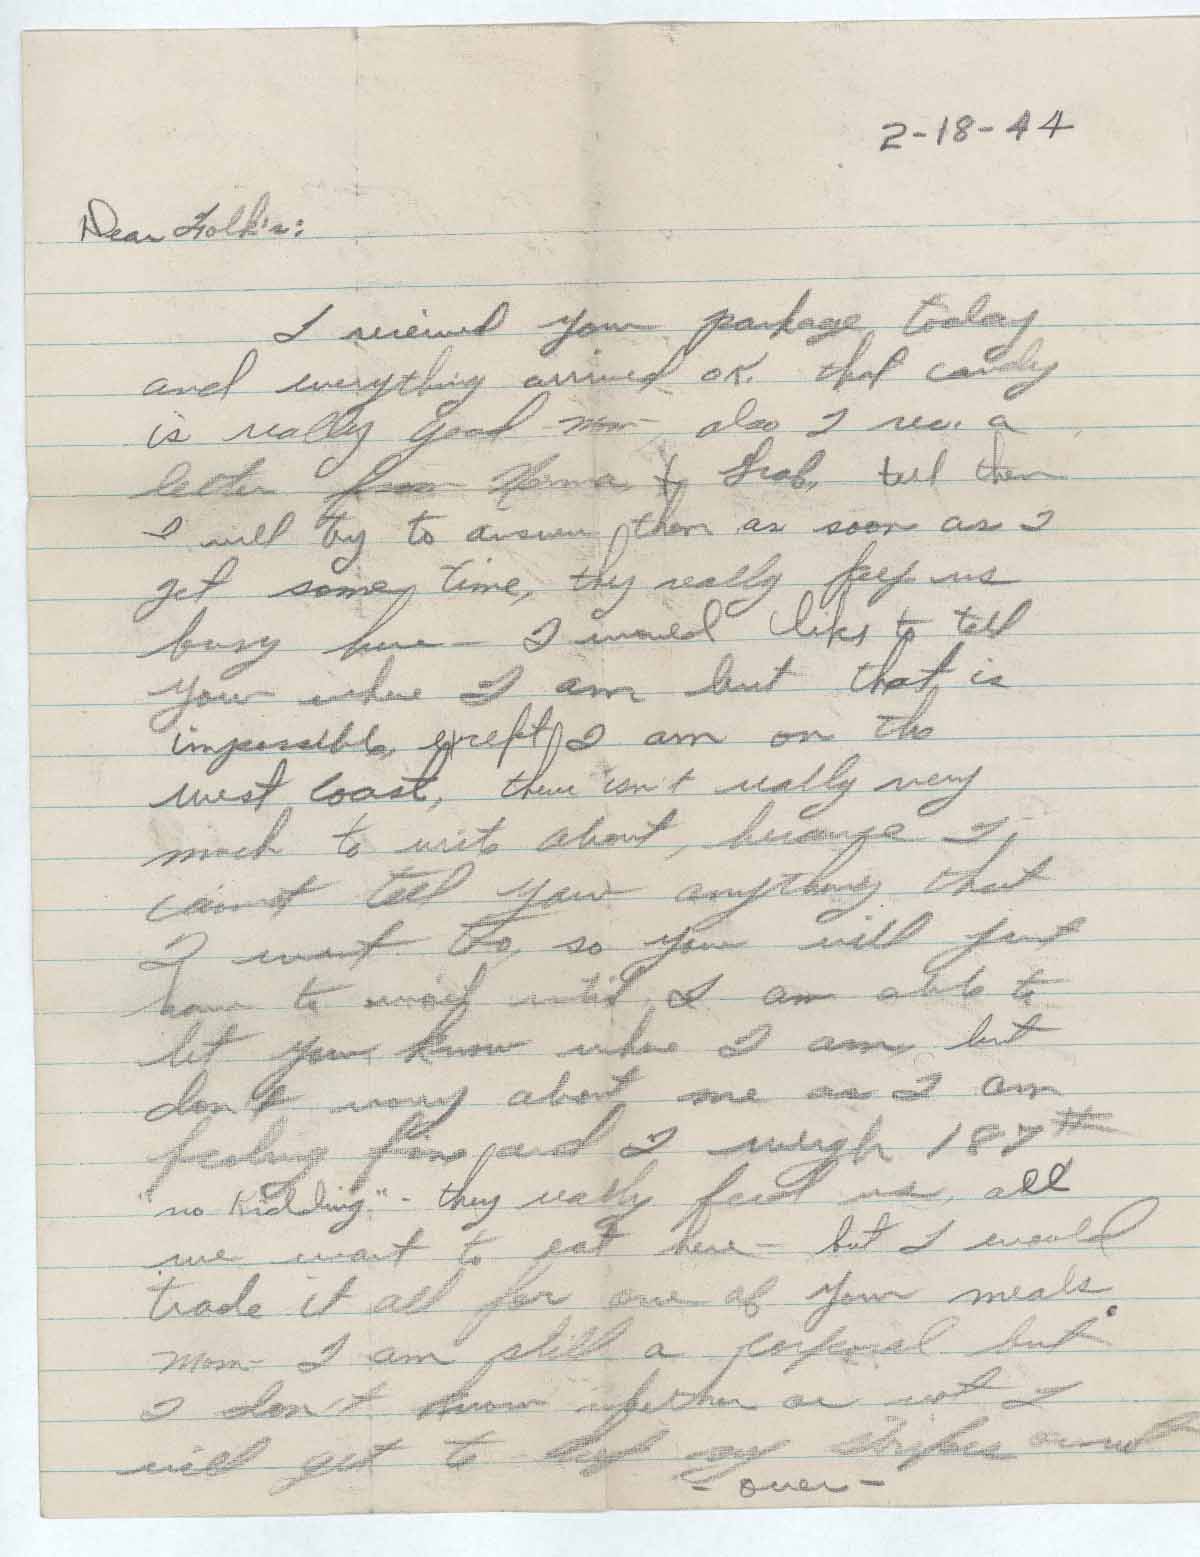 2-18-44
Dear Folk's:
I recieved your package today
and everything arrived OK. that candy
is really good mom- also I rec. a
letter from Norma, & tell them
I will try to answer them as soon as I
get some time, they really keep us
busy here- I would like to tell
you where I am but that is
impossible, except I am on the
west coast, there isn't really very
much to write about, because I
cannot tell you anything that
I want to, so you will just
have to wait until I am able to
let you know where I am, but
don't worry about me as I am
feeling fine, and I weigh 187#
"no kidding." - they really feed us, all
we want to eat here- but I would
trade it all for one of your meals
mom- I am still a corporal but
I don't know whether or not I
will get to keep my stripes
- over -